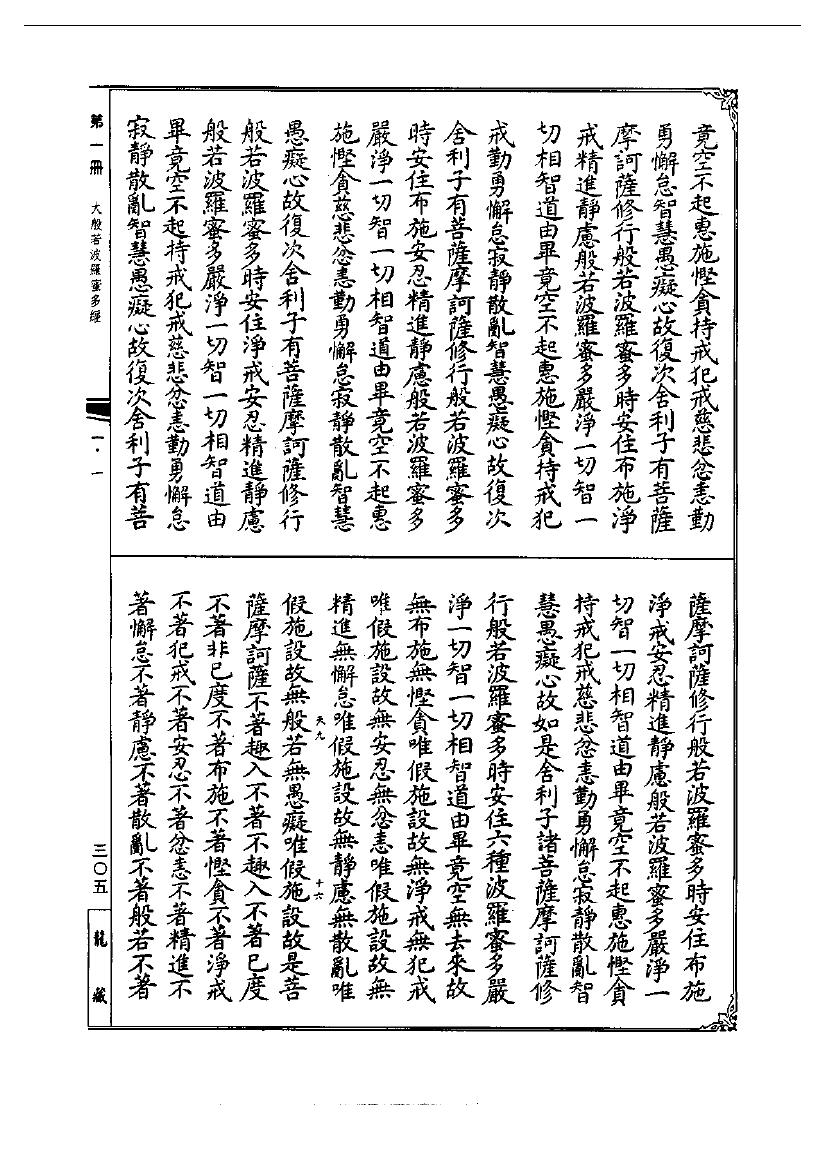 竟空不起惠施慳貪持戒犯戒慈悲忿恚勤
勇懈怠智慧愚癡心故復次舍利子有菩薩
摩訶薩修行般若波羅蜜多時安住布施淨
戒精進靜慮般若波羅蜜多嚴淨一切智一
切相智道由畢竟空不起惠施慳貪持戒犯
戒勤勇懈怠寂靜散亂智慧愚癡心故復次
舍利子有菩薩摩訶薩修行般若波羅蜜多
時安住布施安忍精進靜慮般若波羅蜜多
嚴淨一切智一切相智道由畢竟空不起惠
施慳貪慈悲忿恚勤勇懈怠寂靜散亂智慧
愚癡心故復次舍利子有菩薩摩訶薩修行
般若波羅蜜多時安住淨戒安忍精進靜慮
般若波羅蜜多嚴淨一切智一切相智道由
畢竟空不起持戒犯戒慈悲忿恚勤勇懈怠
寂靜散亂智慧愚癡心故復次舍利子有菩
薩摩訶薩修行般若波羅蜜多時安住布施
淨戒安忍精進靜慮般若波羅蜜多嚴淨一
切智一切相智道由畢竟空不起惠施慳貪
持戒犯戒慈悲忿恚勤勇懈怠寂靜散亂智
慧愚癡心故如是舍利子諸菩薩摩訶薩修
行般若波羅蜜多時安住六種波羅蜜多嚴
淨一切智一切相智道由畢竟空無去來故
無布施無慳貪唯假施設故無淨戒無犯戒
唯假施設故無安忍無忿恚唯假施設故無
精進無懈怠唯假施設故無靜慮無散亂唯
天九
十六
假施設故無般若無愚癡唯假施設故是菩
薩摩訶薩不著趣入不著不趣入不著已度
不著非已度不著布施不著慳貪不著淨戒
不著犯戒不著安忍不著忿恚不著精進不
著懈怠不著靜慮不著散亂不著般若不著
第一冊
大般若波羅蜜多經
一·一
三〇五
龍藏